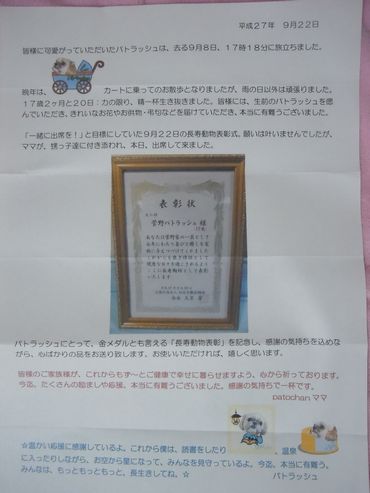 平成27年 9月22日
皆様に可愛がっていただいたパトラッシュは、去る9月8日、17時18分に旅立ちました。
晩年は、カートに乗ってのお散歩となりましたが、雨の日以外は頑張りました。
17歳2ヶ月と20日:力の限り、精一杯生き抜きました。皆様には、生前のパトラッシュを偲
んでいただき、きれいなお花やお供物・弔句などを届けていただき、本当に有難うございました。
「一緒に出席を!」と目標にしていた9月22日の長寿動物表彰式。願いは叶いませんでしたが、
ママが、甥っ子達に付き添われ、本日、出席して来ました。
表彰状
菅野パトラッシュ 様
パトラッシュにとって、金メダルとも言える「長寿動物表彰」を記念し、感謝の気持ちを込めな
がら、心ばかりの品をお送り致します。お使いいただければ、嬉しく思います。
皆様のご家族様が、これからもず~とご健康で幸せに暮らせますよう、心から祈っております。
今迄、たくさんの励ましや応援、本当に有難うございました。感謝の気持ちで一杯です。
patochanママ
☆温かい応援に感謝しているよ。これから僕は、読書をしたり、温泉
に入ったりしながら、お空から星になって、みんなを見守っているよ。今迄、本当に有難う。
みんなは、もっともっともっと、長生きしてね。☆ パトラッシュ